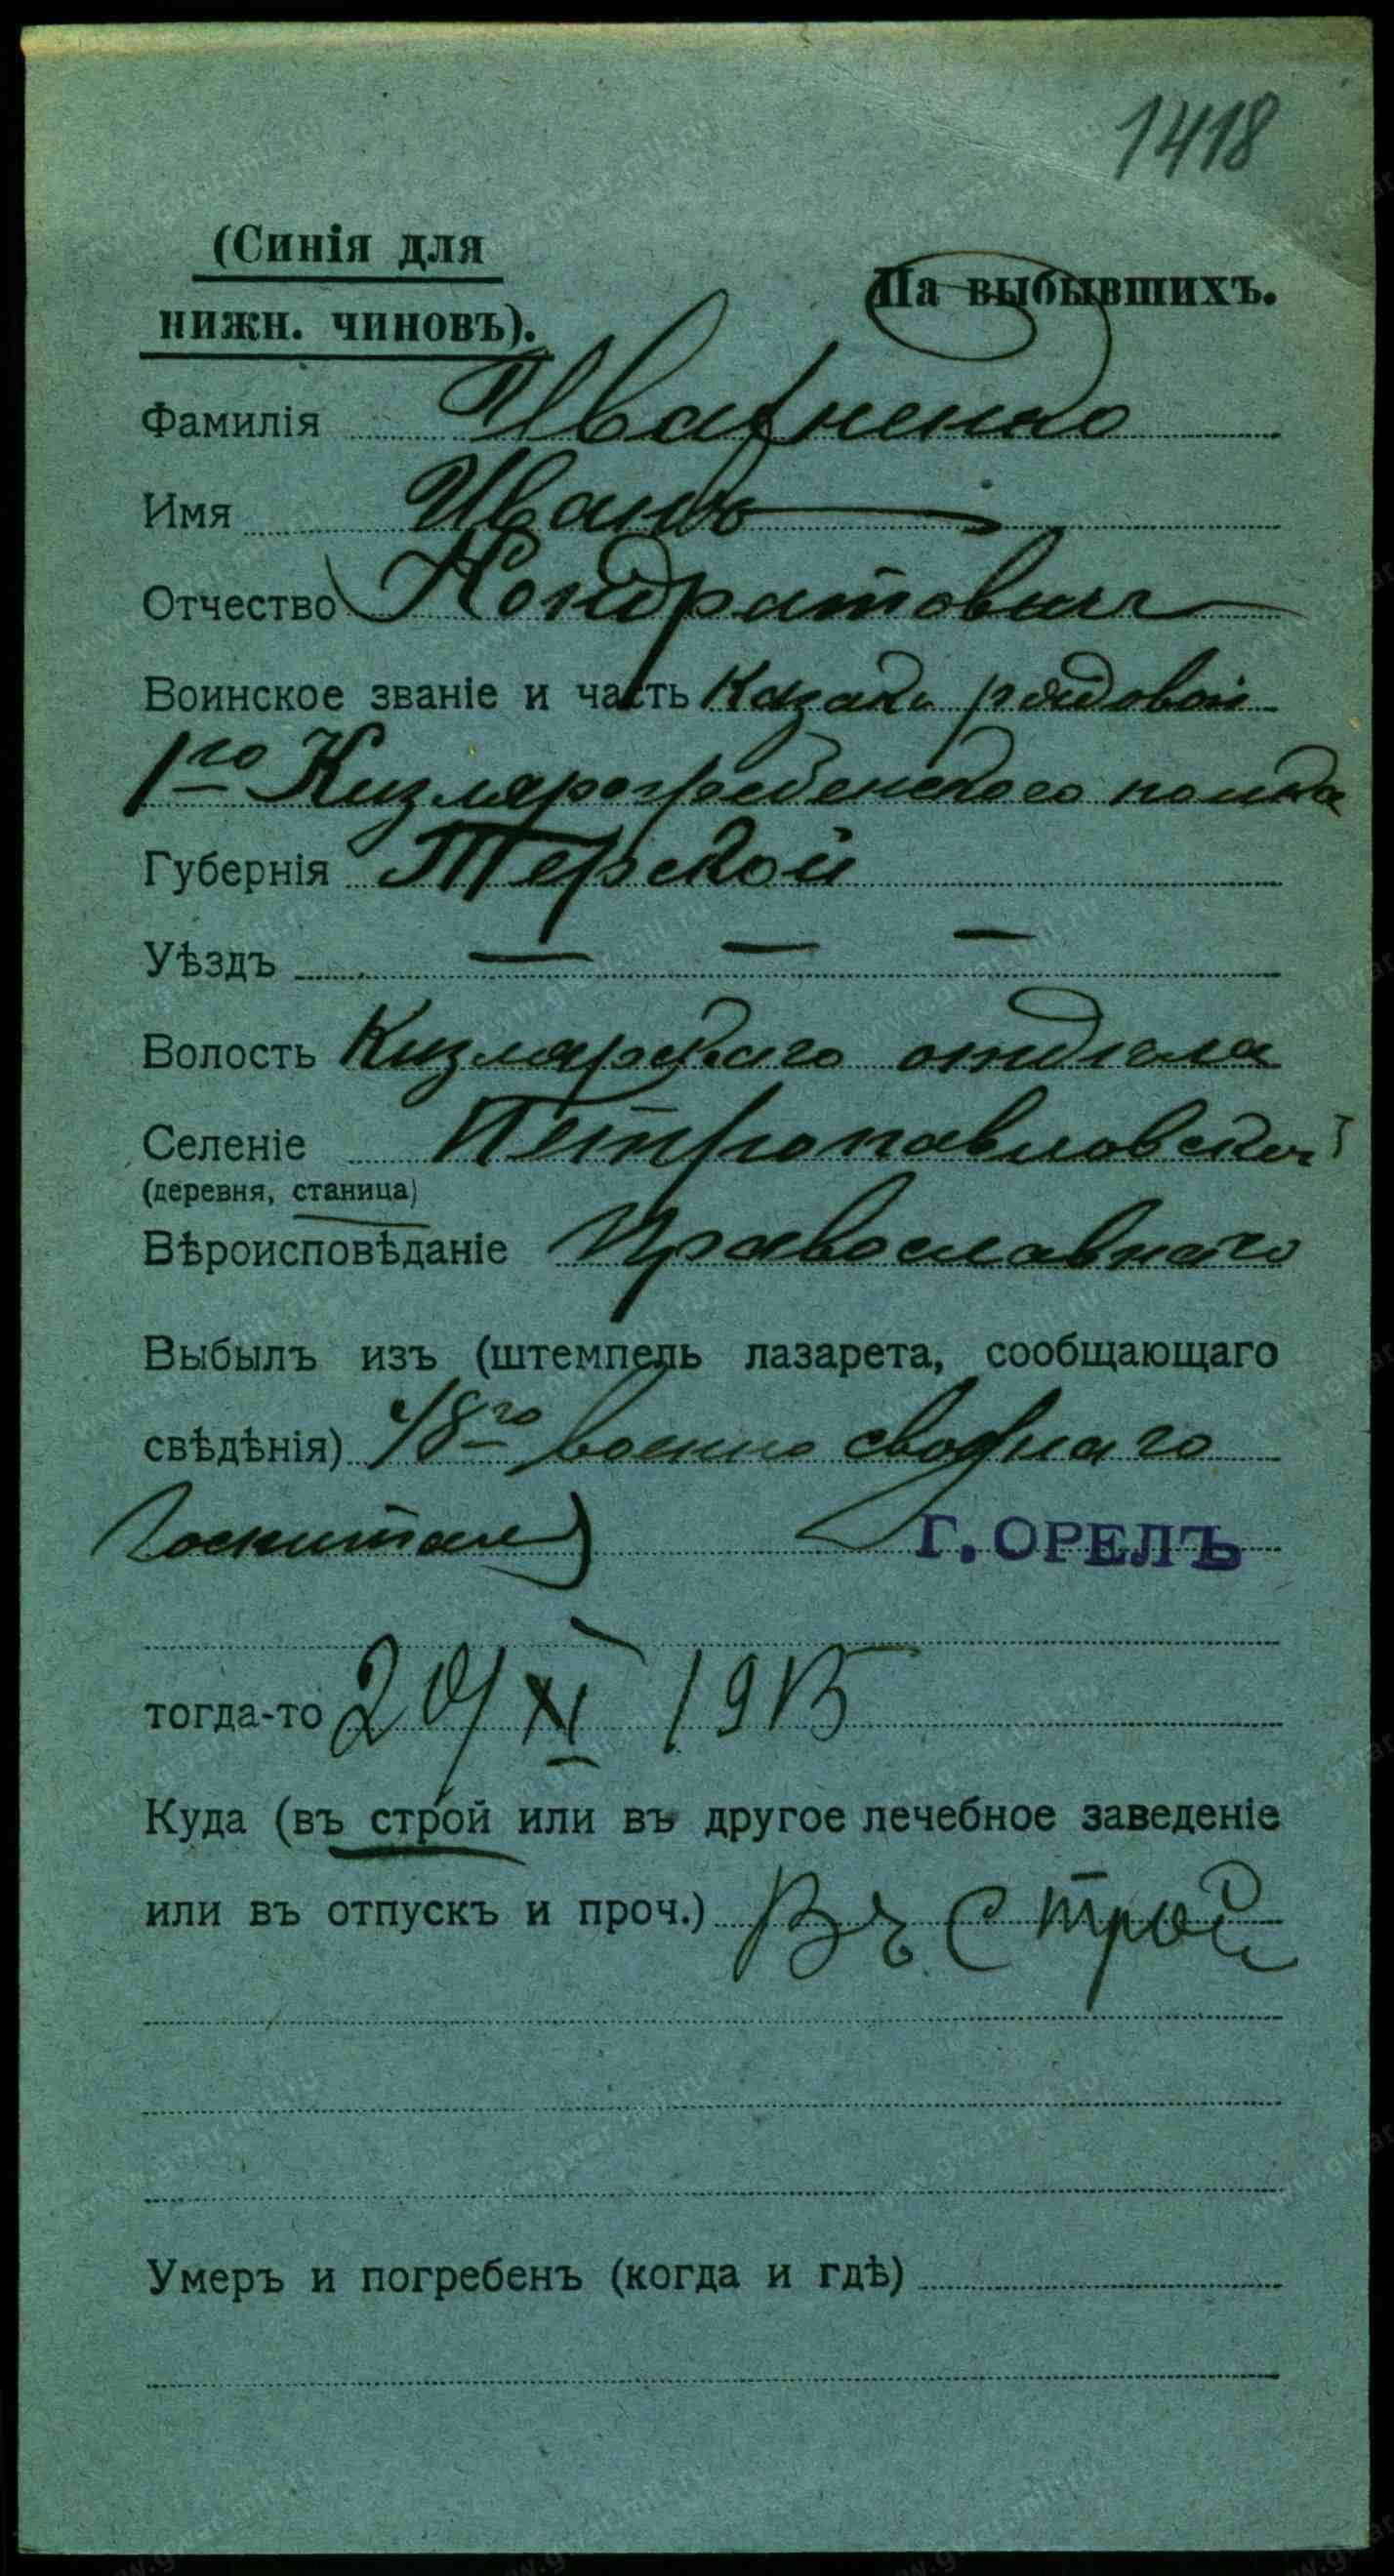 1418
(Синія для
нижн. чиновъ).
На выбывшихъ.
Фамилія
Имя Иванъ
Отчество Кондратовичъ
Воинское званіе и часть Казакъ рядовой
1го Кизлярогребенскаго полка
Губернія Терской
Уѣздъ — — —
Волость Кизлярскаго отдѣла
Селеніе Петропавловской
(деревня, станица)
Вѣроисповѣданіе Православнаго
Выбылъ изъ (штемпель лазарета, сообщающаго
свѣдѣнія) военно своднаго
Госпиталя Г. ОРЕЛЪ
тогда-то 20/XI 1915
Куда (въ строй или въ другое лечебное заведеніе
или въ отпускъ и проч.) Въ Строй
Умеръ и погребенъ (когда и гдѣ)